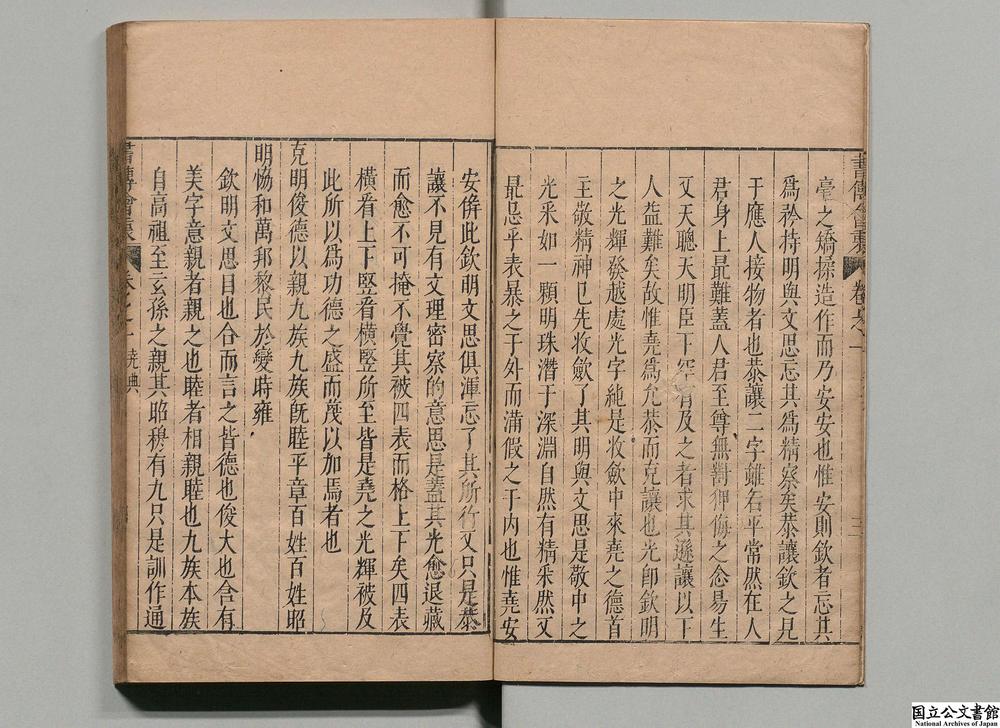 毫之矯揉造作而乃安安也惟安則欽者忘其
為矜持明與文思忘其為精察矣恭讓欽之見
于應人接物者也恭讓二字雖若平常然在人
君身上最難蓋人君至尊無對狎侮之念易生
又天聰天明臣下罕有及之者求其遜讓以下
人益難矣故惟堯為允恭而克讓也光卽欽明
之光輝發越處光字純是收歛中來堯之德首
主敬精神已先收歛了其明與文思是敬中之
光采如一顆明珠潛于深淵自然有精采然又
最忌乎表暴之于外而滿假之于内也惟堯安
書傳會衷
卷之一
三
安倂此欽明文思俱渾忘了其所行又只是恭
讓不見有文理密察的意思是蓋其光愈退藏
而愈不可掩不覺其被四表而格上下矣四表
橫看上下竪看橫竪所至皆是堯之光輝被及
此所以為功德之盛而蔑以加焉者也
克明俊德以親九族九族旣睦平章百姓百姓昭
明恊和萬邦黎民於變時雍
欽明文思目也合而言之皆德也俊大也含有
美字意親者親之也睦者相親睦也九族本族
自高祖至玄孫之親其昭穆有九只是訓作通
書傳會衷
卷之一
堯典
国立公文書館
National Archives of Japan